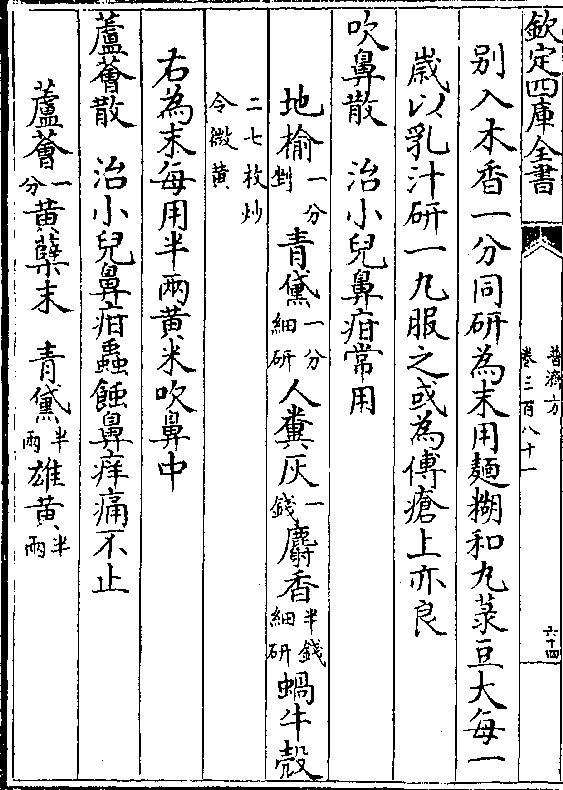 欽定四庫全書
普濟方
卷三百八十一
六十四
別入木香一分同研為末用麵糊和丸菉豆大每一
歲以乳汁研一丸服之或為傅瘡上亦良
吹鼻散　治小兒鼻疳常用
地榆一分剉青黛一分細研人糞灰一錢麝香半錢細研蝸牛殼
二七枚炒令微黃
右為末每用半兩黃米吹鼻中
蘆薈散　治小兒鼻疳蟲蝕鼻痒痛不止
蘆薈一分黃蘗末　青黛半兩雄黃半兩